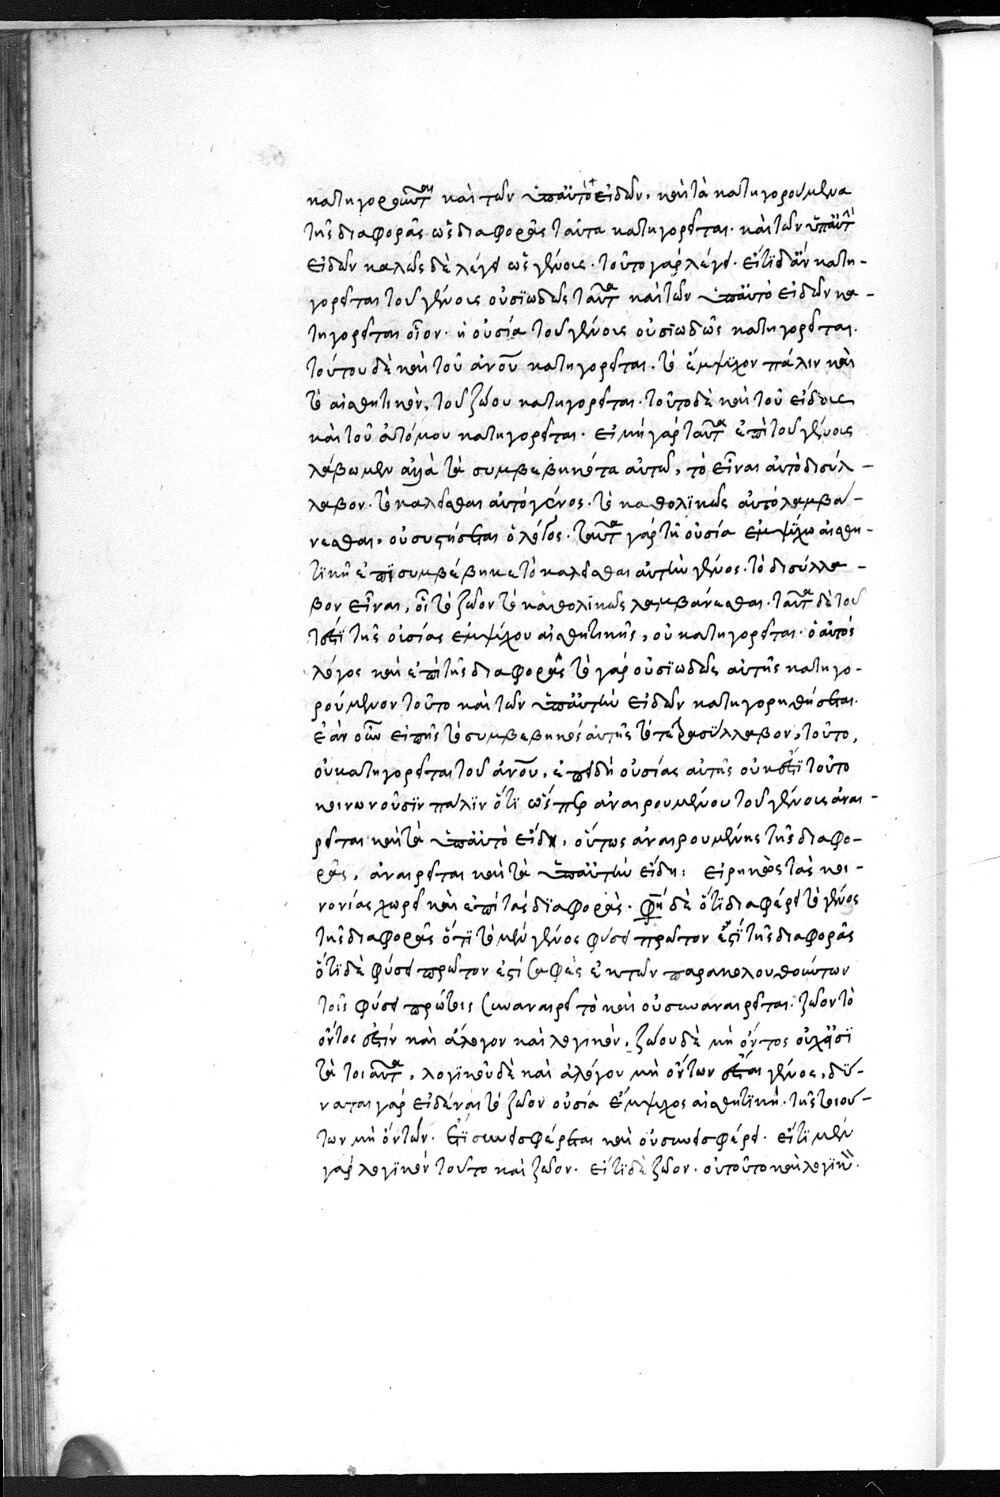 κατηγορεῖται ταῦτα καὶ τῶν ὑπ' αὐτὸ εἰδῶν, καὶ τὰ κατηγορούμενα
τῆς διαφορᾶς ὡς διαφορᾶς ταῦτα κατηγορεῖται καὶ τῶν ὑπ' αὐτὴν
εἰδῶν καλῶς δὲ λέγει ὡς γένους. τοῦτο γὰρ λέγει. εἴ τι δ' ἂν κατη-
γορεῖται τοῦ γένους οὐσϊωδῶς ταῦτα καὶ τῶν ὑπ' αὐτὸ εἰδῶν κα-
τηγορεῖται οἷον. ἡ οὐσία τοῦ γένους οὐσϊωδῶς κατηγορεῖται.
τούτου δὲ καὶ τοῦ ἀνου κατηγορεῖται. τὸ ἔμψϋχον πάλιν καὶ
τὸ αἰσθητικὸν, τοῦ ζώου κατηγορεῖται. τοῦτο δὲ καὶ τοῦ εἴδους
καὶ τοῦ ἀτόμου κατηγορεῖται. εἰ μὴ γὰρ ταῦτα ἐπὶ τοῦ γένους
λάβωμεν ἀλλὰ τὰ συμβεβηκότα αὐτῶ, τὸ εἶναι αὐτὸ δισύλ-
λαβον. τὸ καλεῖσθαι αὐτὸ γένος. τὸ καθολϊκῶς αὐτὸ λαμβά-
νεσθαι, οὐ συστήσεται ὁ λόγος. ταῦτα γὰρ τῆ οὐσία ἐμψύχω αἰσθη-
τϊκῆ ἐπϊσυμβέβηκε τὸ καλεῖσθαι αὐτὴν γένος. τὸ δισύλλα-
βον εἶναι, οἷ τὸ ζῶον τὸ καθολϊκῶς λαμβάνεσθαι. ταῦτα δὲ τοῦ
τῆς οὐσίας ἐμψύχου αἰσθητικῆς, οὐ κατηγορεῖται. ὁ αὐτὸς
λόγος καὶ ἐπὶ τῆς διαφορᾶς τὸ γὰρ οὐσϊωδῶς αὐτῆς κατηγο-
ρούμενον τοῦτο καὶ τῶν ὑπ' αὐτὴν εἰδῶν κατηγορηθήσεται.
ἐὰν οὖν εἴπης τὸ συμβεβηκὸς αὐτῆς τὸ τετρασύλλαβον, τοῦτο,
οὐ κατηγορεῖται τοῦ ἀνου, ἐπειδὴ οὐσίας αὐτῆς οὐκ ἔστϊ τοῦτο
κοινωνοῦσϊν πάλϊν ὅτϊ ὥσπερ ἀναιρουμένου τοῦ γένους ἀναι-
ρεῖται καὶ τὰ ὑπ' αὐτὸ εἴδη, οὕτως ἀναιρουμένης τῆς διαφο-
ρᾶς, ἀναιρεῖται καὶ τὰ ὑπ' αὐτὴν εἴδη: εἰρηκὼς τὰς κοι-
νονίας χωρεῖ καὶ ἐπὶ τὰς δϊαφοράς. φησὶ δὲ ὅτϊ διαφέρει τὸ γένος
τῆς διαφορᾶς ὅτϊ τὸ μὲν γένος φύσει πρῶτον ἐστὶ τῆς διαφορᾶς
ὅτϊ δὲ φύσει πρῶτον ἐστὶ σαφὲς ἐκ τῶν παρακολουθούντων
τοῖς φύσει πρώτοις συναναιρεῖ τὸ καὶ οὐ συναναιρεῖται. ζῶον τὸ
ὄντος ἐστὶν καὶ ἄλογον καὶ λογικὸν, ζώου δὲ μὴ ὄντος οὐχ ἕξϊ
τὰ τοιαῦτα, λογϊκοῦ δὲ καὶ ἀλόγου μὴ ὄντων ἔσται γένος, δύ-
ναται γὰρ εἰδέναι τὸ ζῶον οὐσία ἔμψυχος αἰσθητϊκὴ. τῆς τοιού-
των μὴ ὄντων. ἔτϊ συνεισφέρεται καὶ οὐ συνεισφέρει. εἴ τϊ μὲν
γὰρ λογϊκὸν τοῦτο καὶ ζῶον. εἴ τϊ δὲ ζῶον. οὐ τοῦτο καὶ λογϊκὸν.